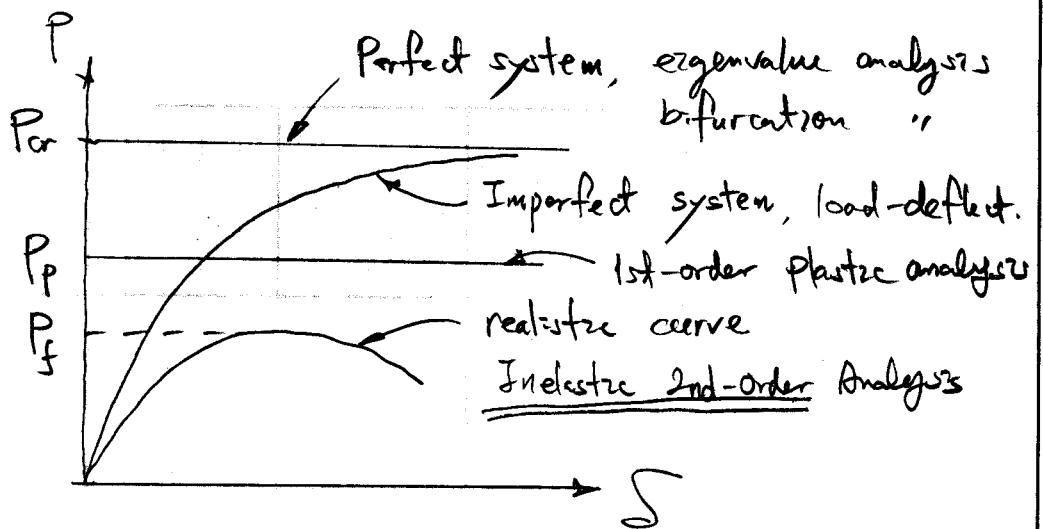 P
Perfect system, eigenvalue analysis
bifurcation "
Pcr
Imperfect system, load-deflect.
Pp
1st-order plastic analysis
Pf
realistic curve
Inelastic 2nd-order Analysis
δ